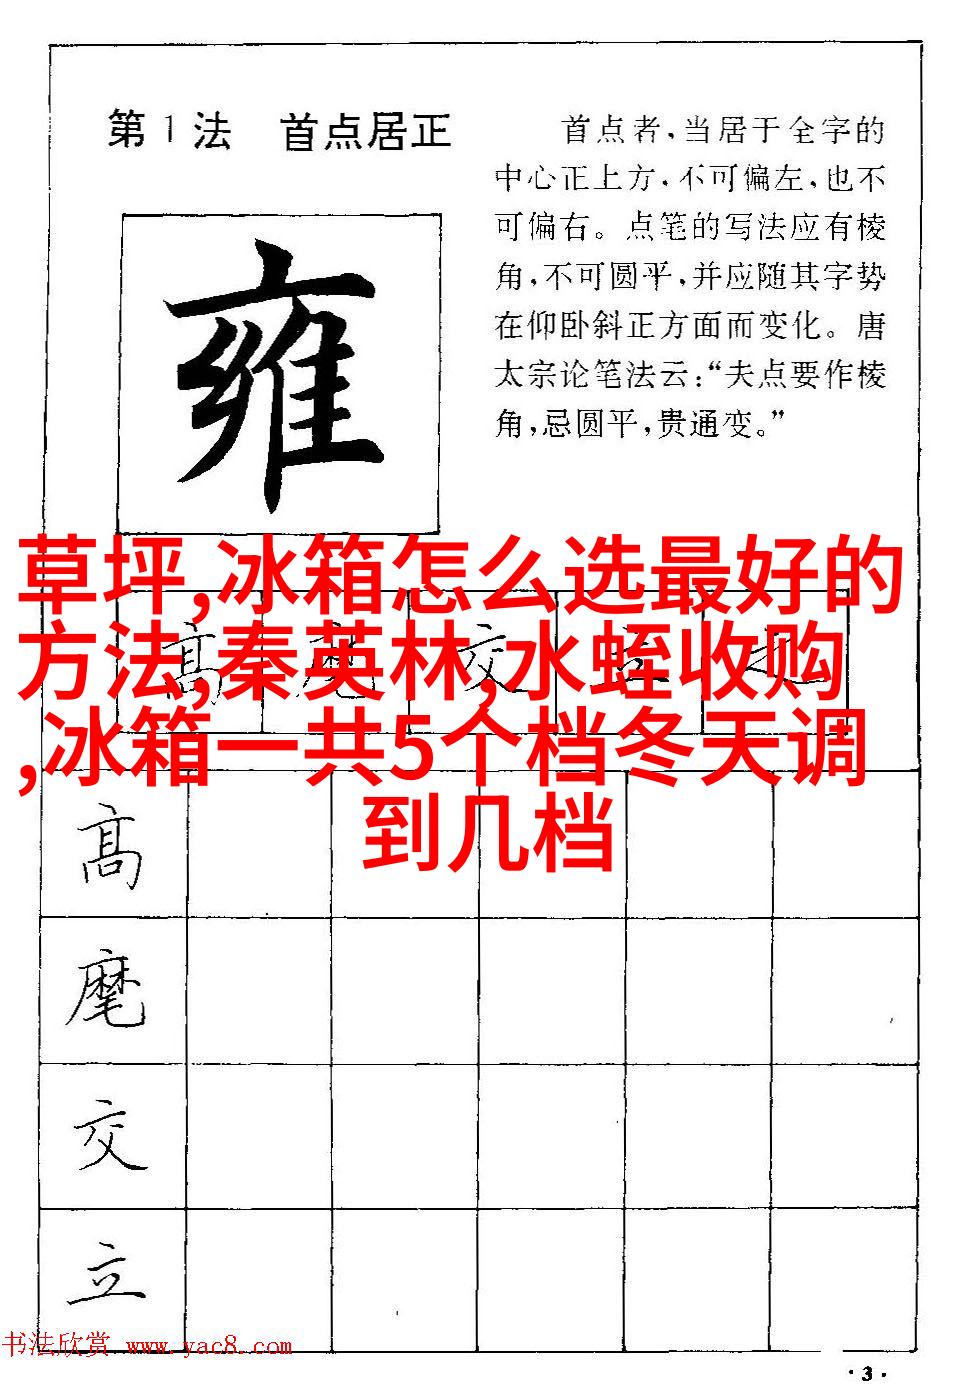 第1法 首点居正
首点者，当居于全字的
中心正上方，不可偏左，也不
可偏右。点笔的写法应有棱
角，不可圆平，并应随其字势
在仰卧斜正方面而变化。唐
太宗论笔法云：“夫点要作棱
角，忌圆平，贵通变。”
雍
草坪,冰箱怎么选最好的
方法,秦英林,水蛭收购
,冰箱一共5个档冬天调
到几档
高 麾 交 立 之
高
麾
交
立
书法欣赏 www.yac8.com
·3·